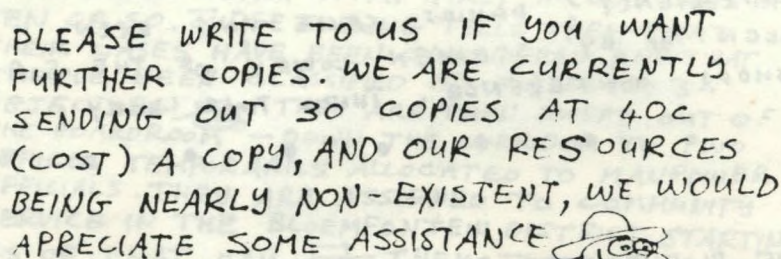 PLEASE WRITE TO US IF YOU WANT
FURTHER COPIES. WE ARE CURRENTLY
SENDING OUT 30 COPIES AT 40c
(COST) A COPY, AND OUR RESOURCES
BEING NEARLY NON-EXISTENT, WE WOULD
APRECIATE SOME ASSISTANCE